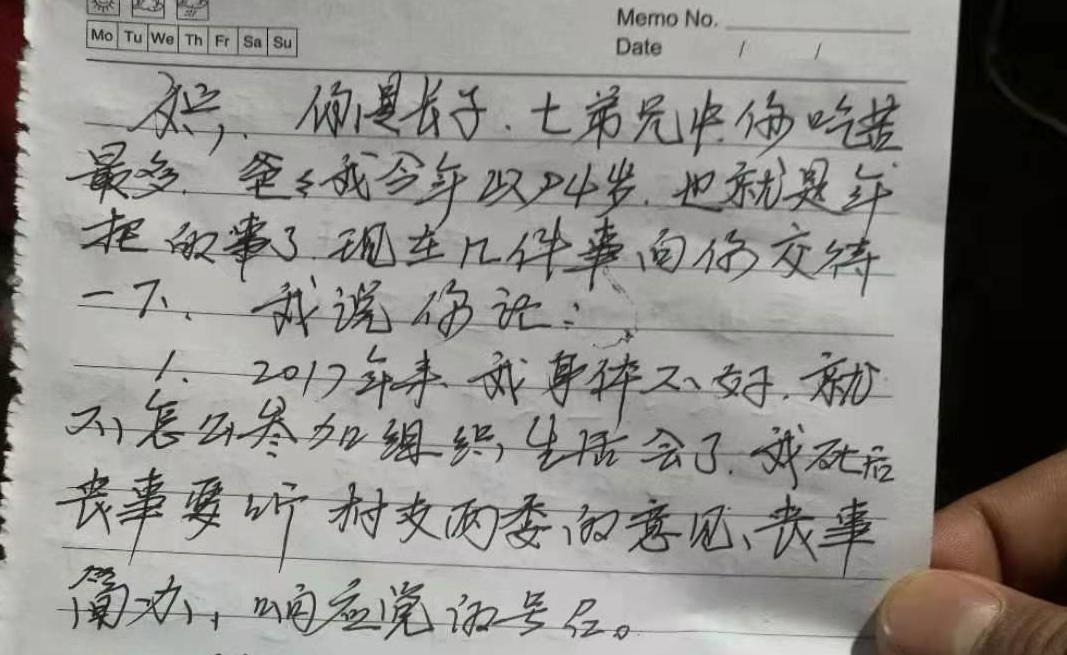 Memo No.
Date / /
Mo Tu We Th Fr Sa Su
你是长子、七弟兄中你吃苦
最多. 爸爸我今年以74岁. 也就是年
把的事了. 现在几件事向你交待
一下、 我说你记:
1. 2017年来、我身体不好. 就
不怎么参加组织生活会了. 我死后
丧事要听村支两委的意见、丧事
简办, 响应党的号召。